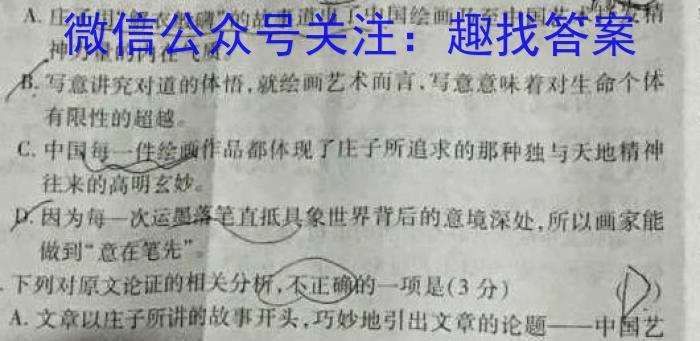 A. 庄子用“解衣般礴”的故事道出了中国绘画乃至中国艺术精
神
微信公众号关注：趣找答案
B. 写意讲究对道的体悟，就绘画艺术而言，写意意味着对生命个体
有限性的超越。
C. 中国每一件绘画作品都体现了庄子所追求的那种独与天地精神
往来的高明玄妙。
D. 因为每一次运墨落笔直抵具象世界背后的意境深处，所以画家能
做到“意在笔先”。
下列对原文论证的相关分析，不正确的一项是（3 分） （D）
A. 文章以庄子所讲的故事开头，巧妙地引出文章的论题——中国艺